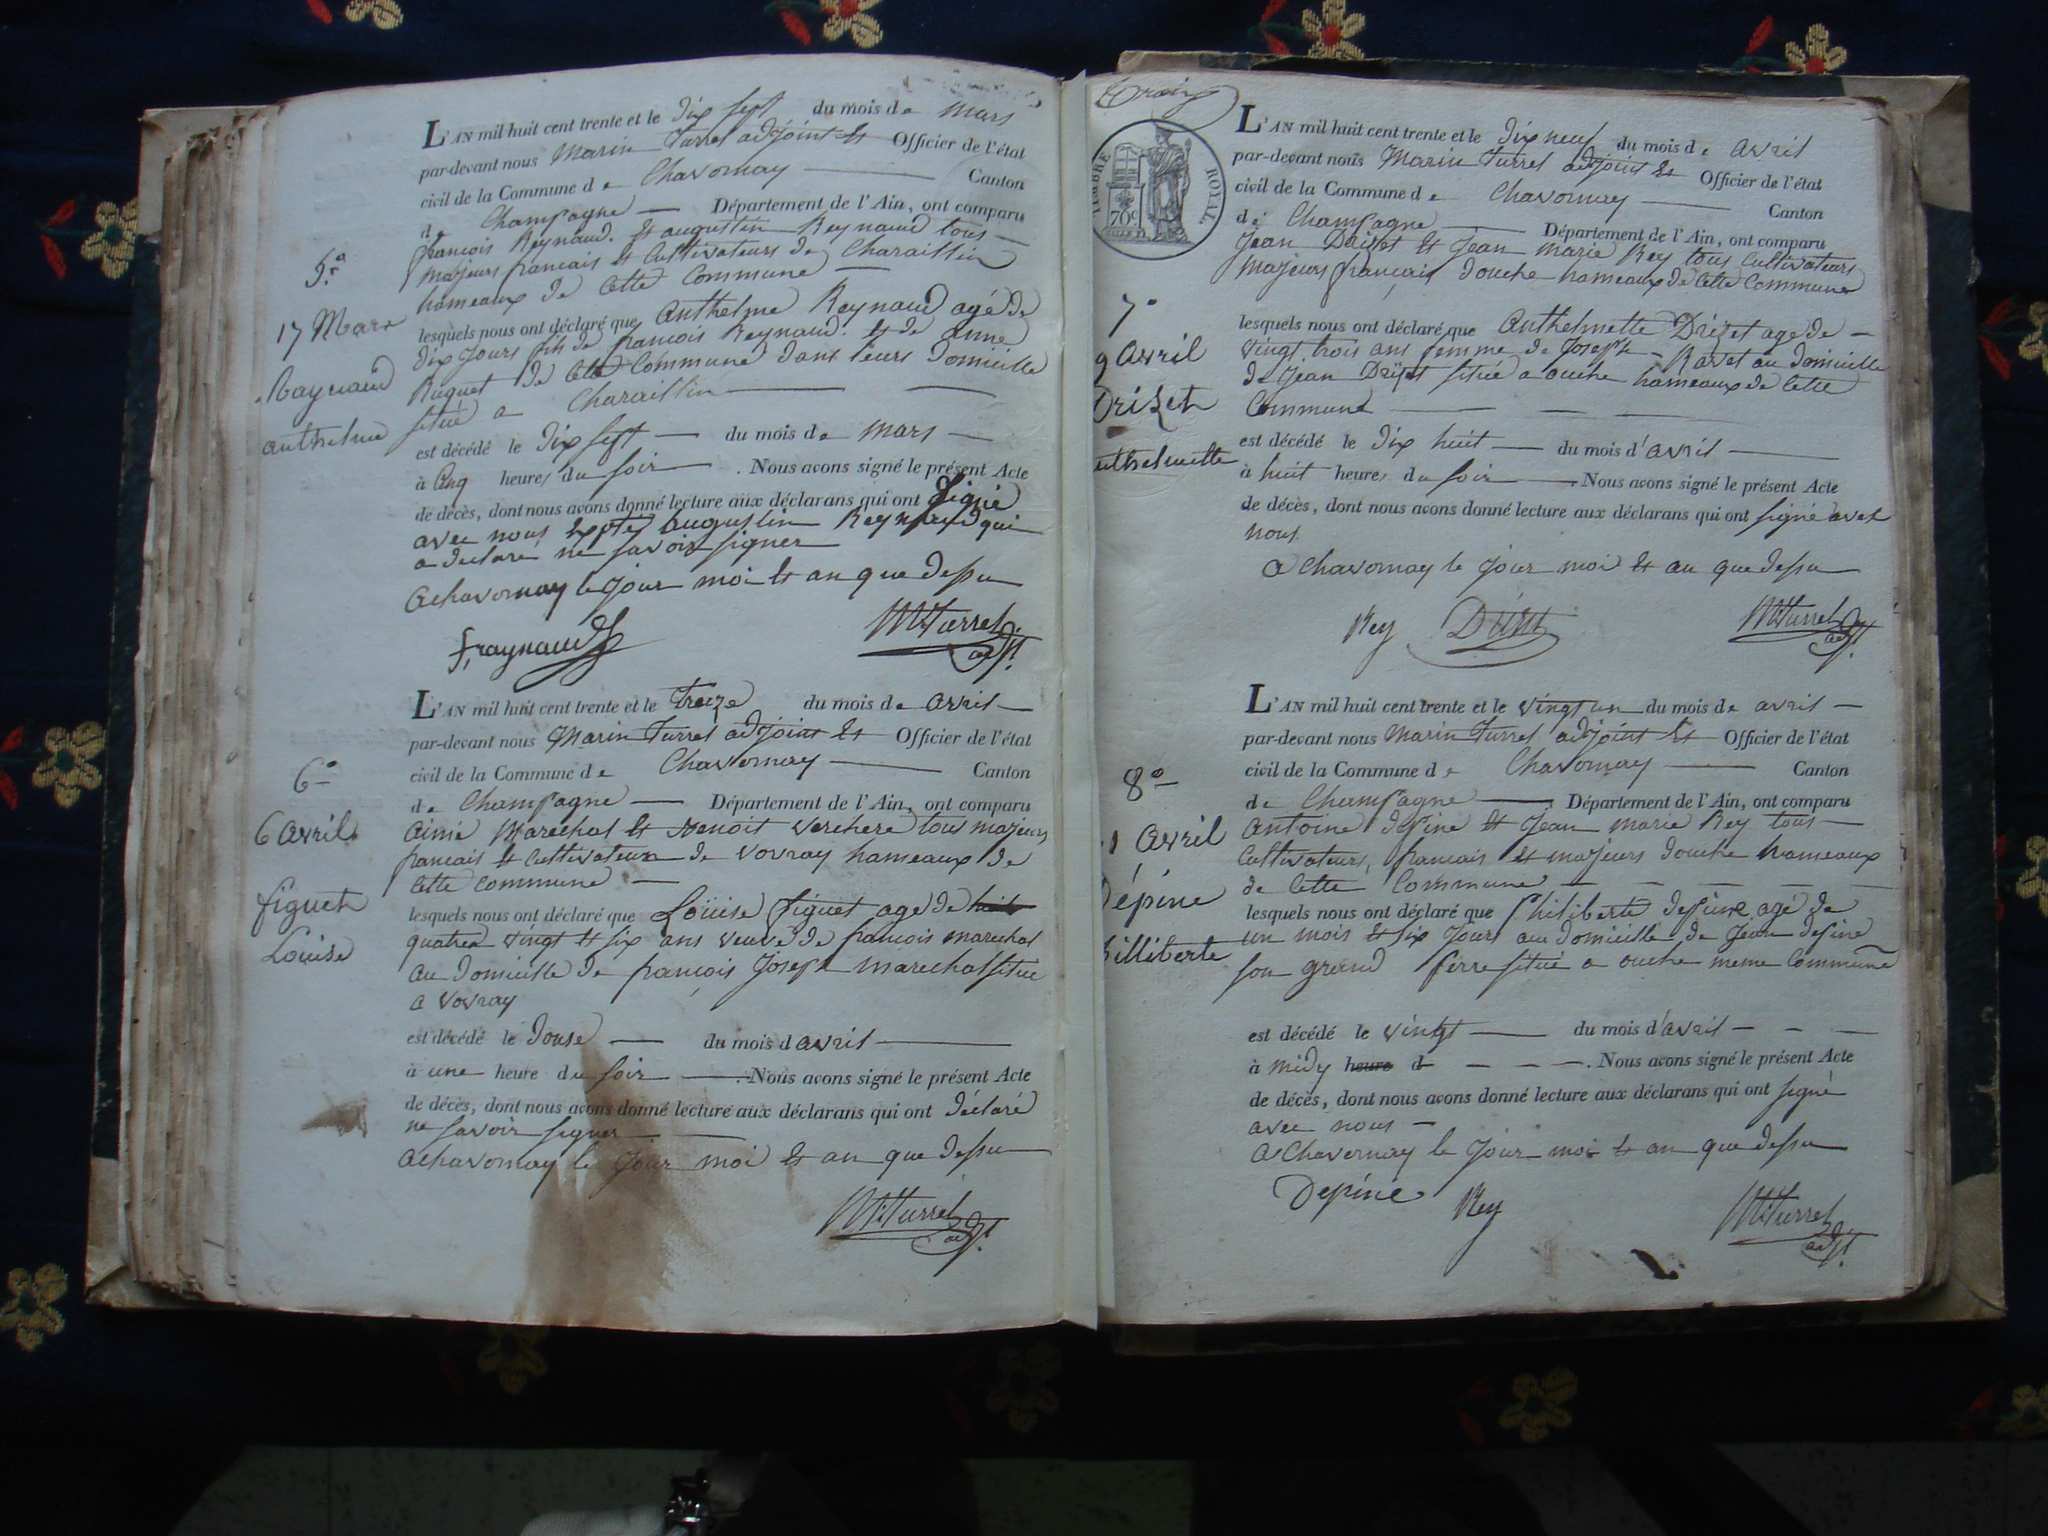 L'AN mil huit cent trente et le dix sept du mois de mars
par-devant nous Marin Turrel adjoint et Officier de l'état
civil de la Commune de Chavornay Canton
de Champagne Département de l'Ain, ont comparu
francois Reynaud. et augustin Reynaud tous
majeurs francais et Cultivateurs de Charaillin
hameaux de Cette Commune
lesquels nous ont déclaré que Anthelme Reynaud agé de
dix Jours fils de francois Reynaud et de anne
Ruguet de Cette Commune dans leurs domicille
situé a Charaillin
est décédé le dix sept du mois de mars
à Cinq heures du soir . Nous avons signé le présent Acte
de décès, dont nous avons donné lecture aux déclarans qui ont signé
avec nous Augustin Reynaud qui
a declaré ne savoir signer
a chavornay le jour moi et an que dessu
f. raynaud
M: Turrel
adjt.
5.e
17 Mars
Raynaud
anthelme
L'AN mil huit cent trente et le treize du mois de avril
par-devant nous Marin Turrel adjoint et Officier de l'état
civil de la Commune de Chavornay Canton
de Champagne Département de l'Ain, ont comparu
aimé Marechal et Benoit Verchere tous majeurs
francais et Cultivateur de Vovray hameaux de
Cette Commune
lesquels nous ont déclaré que Loüise figuet age de huit
quatre vingt et six ans veuve de francois marechal
au domicille de francois Joseph marechal situé
a vovray
est décédé le douse du mois d avril
à une heure du soir . Nous avons signé le présent Acte
de décès, dont nous avons donné lecture aux déclarans qui ont déclaré
ne savoir signer
a chavornay le jour moi et an que dessu
M: Turrel
adjt.
6°
6 avril
figuet
Louise
TIMBRE ROYAL
70c
L'AN mil huit cent trente et le dix neuf du mois de avril
par-devant nous Marin Turrel adjoint et Officier de l'état
civil de la Commune de Chavornay Canton
de Champagne Département de l'Ain, ont comparu
Jean Drizet et Jean marie Rey tous Cultivateurs
majeurs français douche hameaux de Cette Commune
lesquels nous ont déclaré que Anthelmette Drizet age de
vingt trois ans femme de Joseph Ravet au domicille
de Jean Drizet situé a ouche hameaux de Cette
Commune
est décédé le dix huit du mois d'avril
à huit heures du soir . Nous avons signé le présent Acte
de décès, dont nous avons donné lecture aux déclarans qui ont signé avec
nous
a Chavornay le jour moi et an que dessu
Rey
M: Turrel
adjt.
7°
9 avril
Drizet
nthelmette
L'AN mil huit cent trente et le vingt un du mois de avril
par-devant nous Marin Turrel adjoint et Officier de l'état
civil de la Commune de Chavornay Canton
de Champagne Département de l'Ain, ont comparu
Antoine depine et Jean marie Rey tous
Cultivateurs francais et majeurs douche hameaux
de Cette Commune
lesquels nous ont déclaré que Philiberte depine age de
un mois et six jours au domicille de Jean depine
son grand perre situé a ouche meme Commune
est décédé le vingt du mois d'avril
à midy heure d . Nous avons signé le présent Acte
de décès, dont nous avons donné lecture aux déclarans qui ont signé
avec nous
a Chavornay le jour moi et an que dessu
Depine Rey
M: Turrel
adjt.
8°
1 avril
Dépine
hilliberte